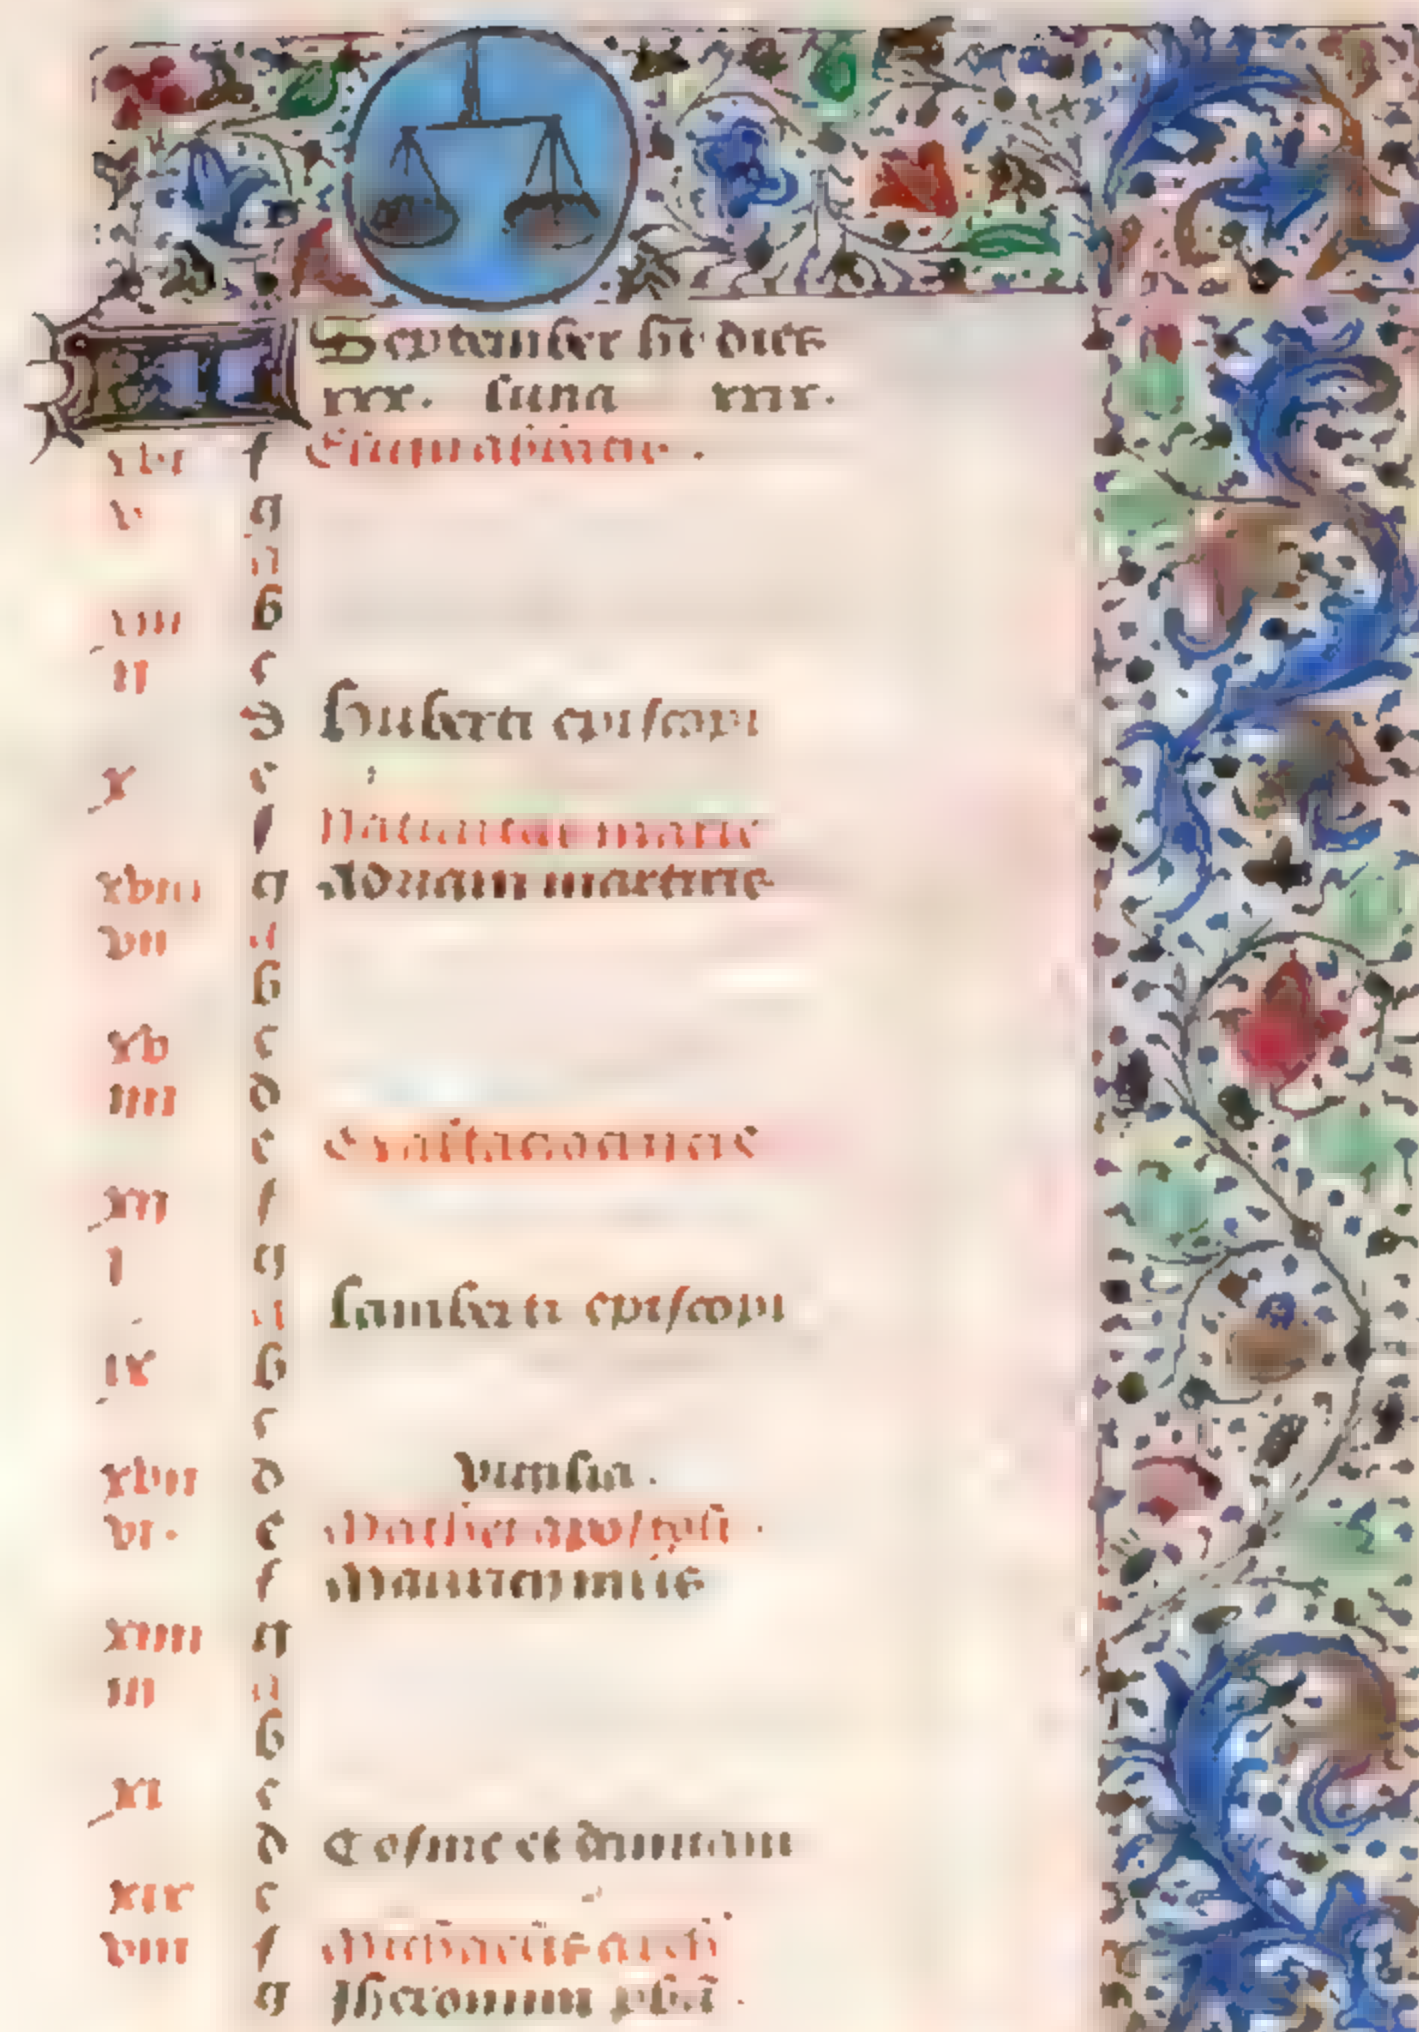 KL September habet dies
xxx. luna xxix.
xvi f Egidii abbatis.
v g
A
xiii b
ii c
d huberti episcopi
x e
f Natiuitas marie
xviii g Adriani martiris
vii A
b
xv c
iiii d
e Exaltacio crucis
xii f
i g
A lamberti episcopi
ix b
c
xvii d vigilia.
vi. e Mathei apostoli.
f Mauricii
xiiii g
iii A
b
xi c
d Cosme et damiani
xix e
viii f Michaelis archi
g Iheronimi